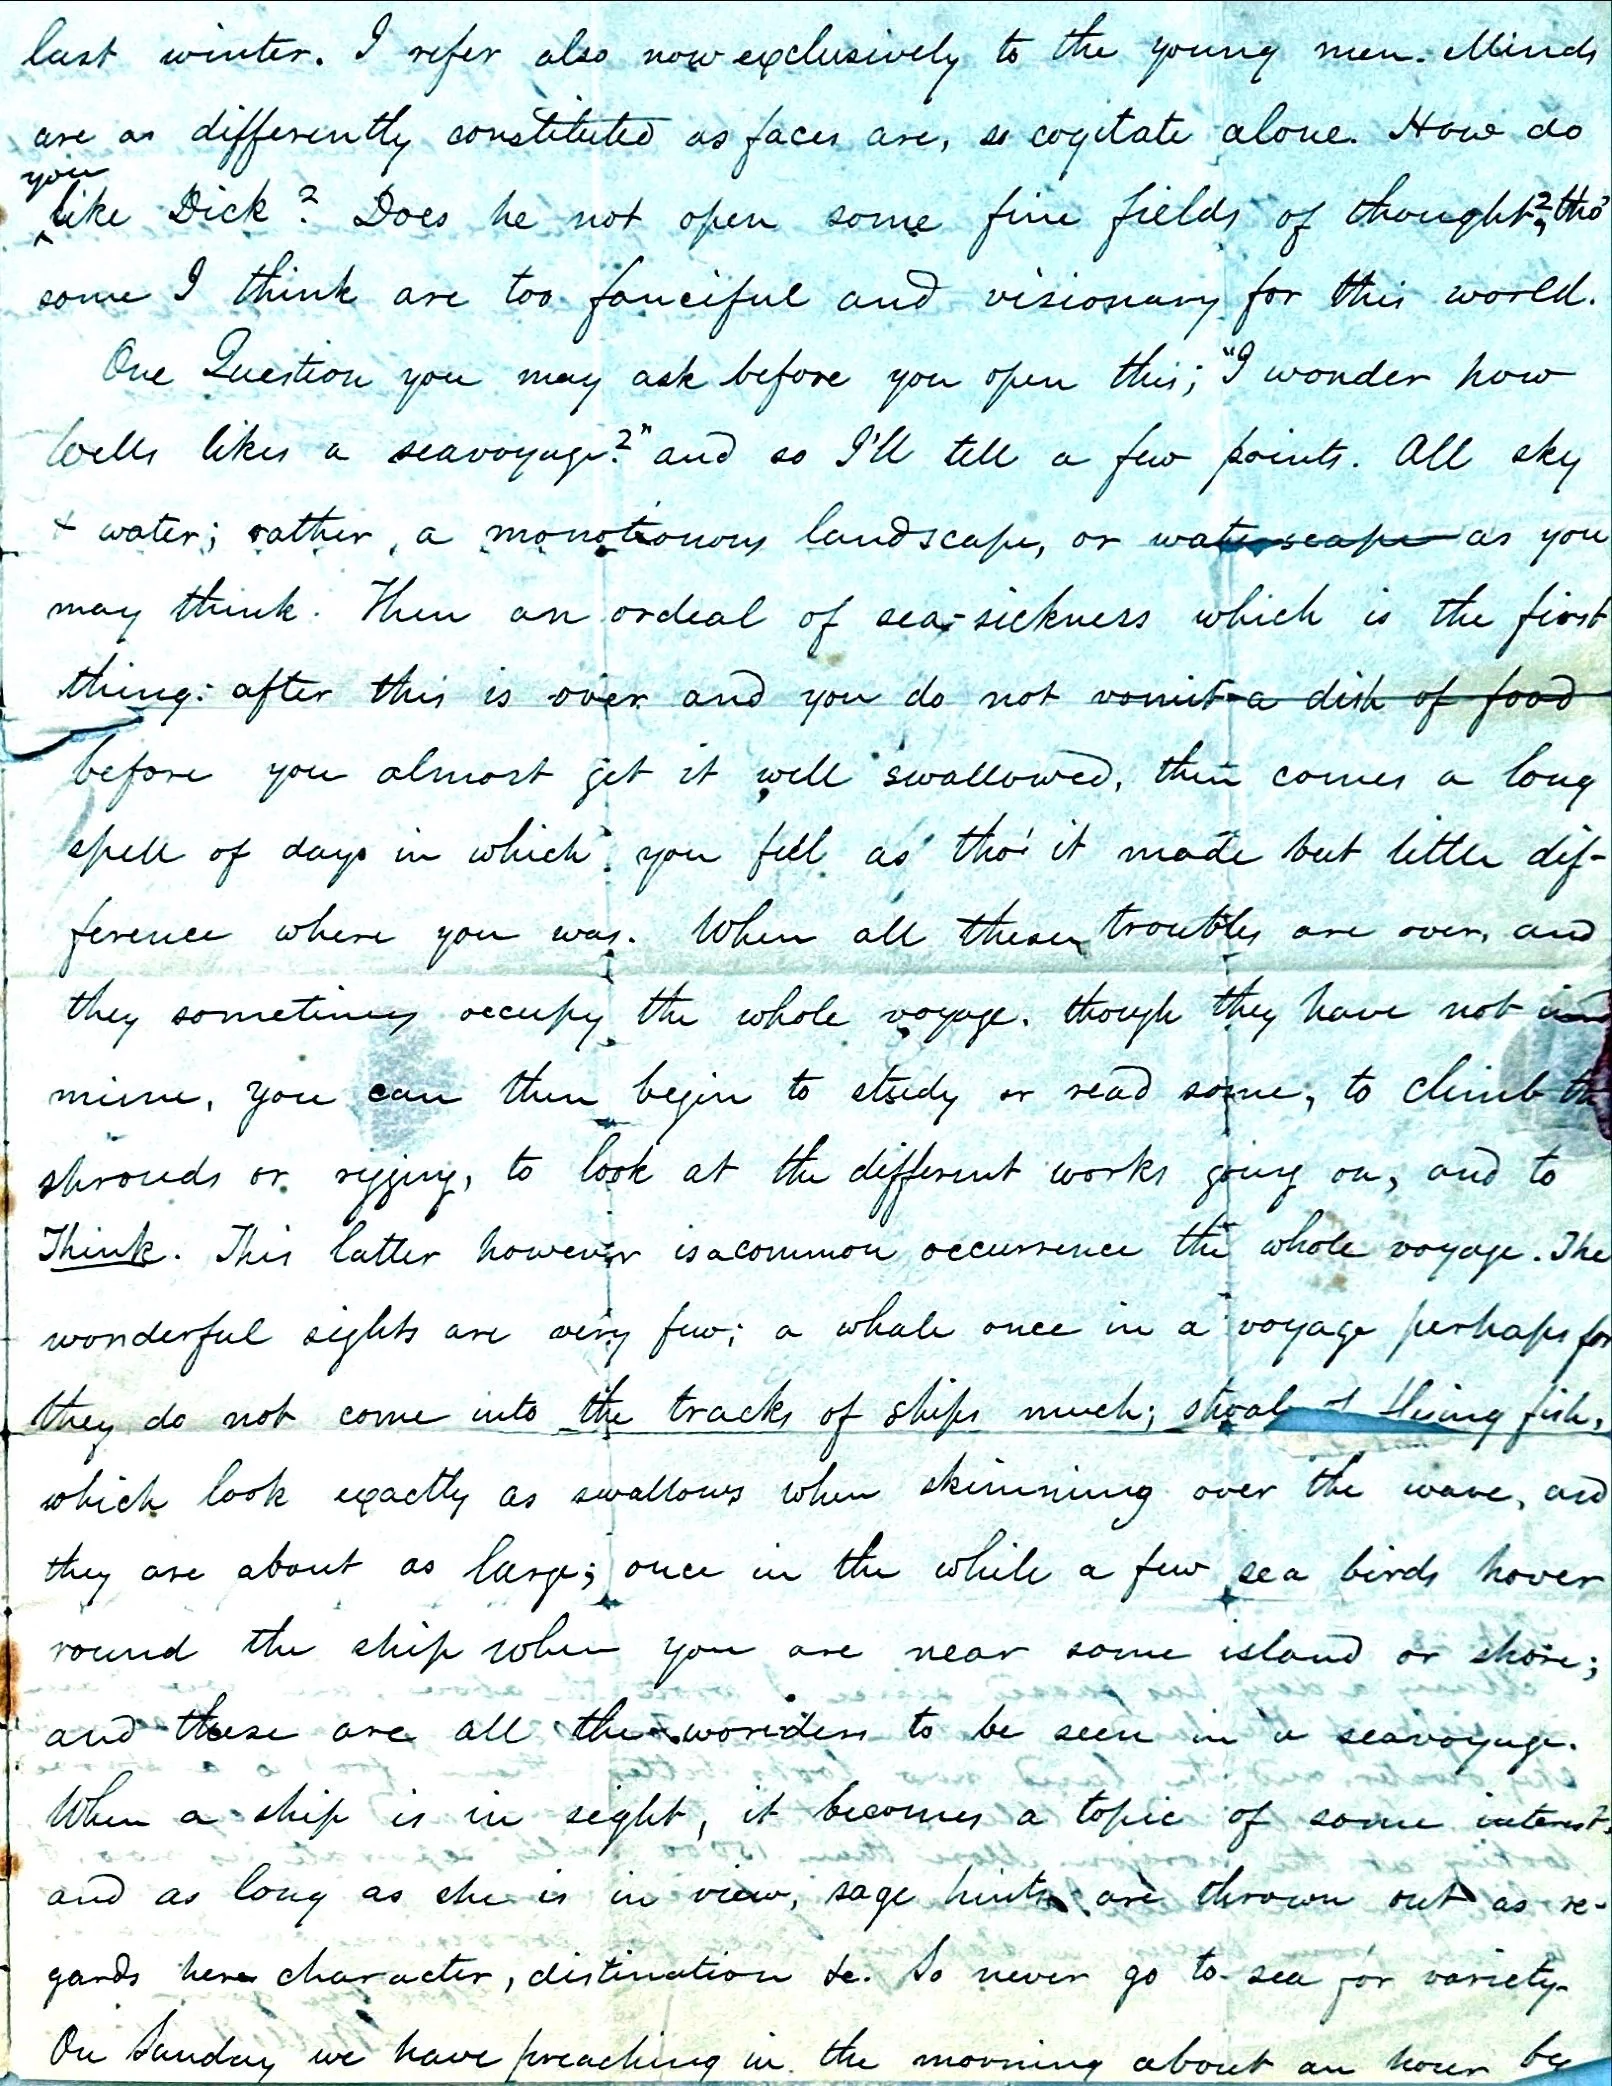 last winter. I refer also now exclusively to the young men. Minds
are as differently constituted as faces are, so cogitate alone. How do
you
like Dick? Does he not open some fine fields of thought?, tho'
some I think are too fanciful and visionary for this world.
One Question you may ask before you open this; "I wonder how
Wells likes a seavoyage?" and so I'll tell a few points. All sky
+ water; rather a monotonous landscape, or waterscape as you
may think. Then an ordeal of sea-sickness which is the first
thing: after this is over and you do not vomit a dish of food
before you almost get it well swallowed, then comes a long
spell of days in which you feel as tho' it made but little dif-
ference where you was. When all these troubles are over, and
they sometimes occupy the whole voyage, though they have not in
mine, you can then begin to study or read some, to climb the
shrouds or rigging, to look at the different works going on, and to
Think. This latter however is a common occurrence the whole voyage. The
wonderful sights are very few; a whale once in a voyage perhaps for
they do not come into the tracks of ships much; shoals of flying fish,
which look exactly as swallows when skimming over the wave, and
they are about as large; once in the while a few sea birds hover
round the ship when you are near some island or shore;
and these are all the wonders to be seen in a seavoyage.
When a ship is in sight, it becomes a topic of some interest,
and as long as she is in view, sage hints are thrown out as re-
gards her character, distination &c. So never go to sea for variety.
On Sunday we have preaching in the morning about an hour by